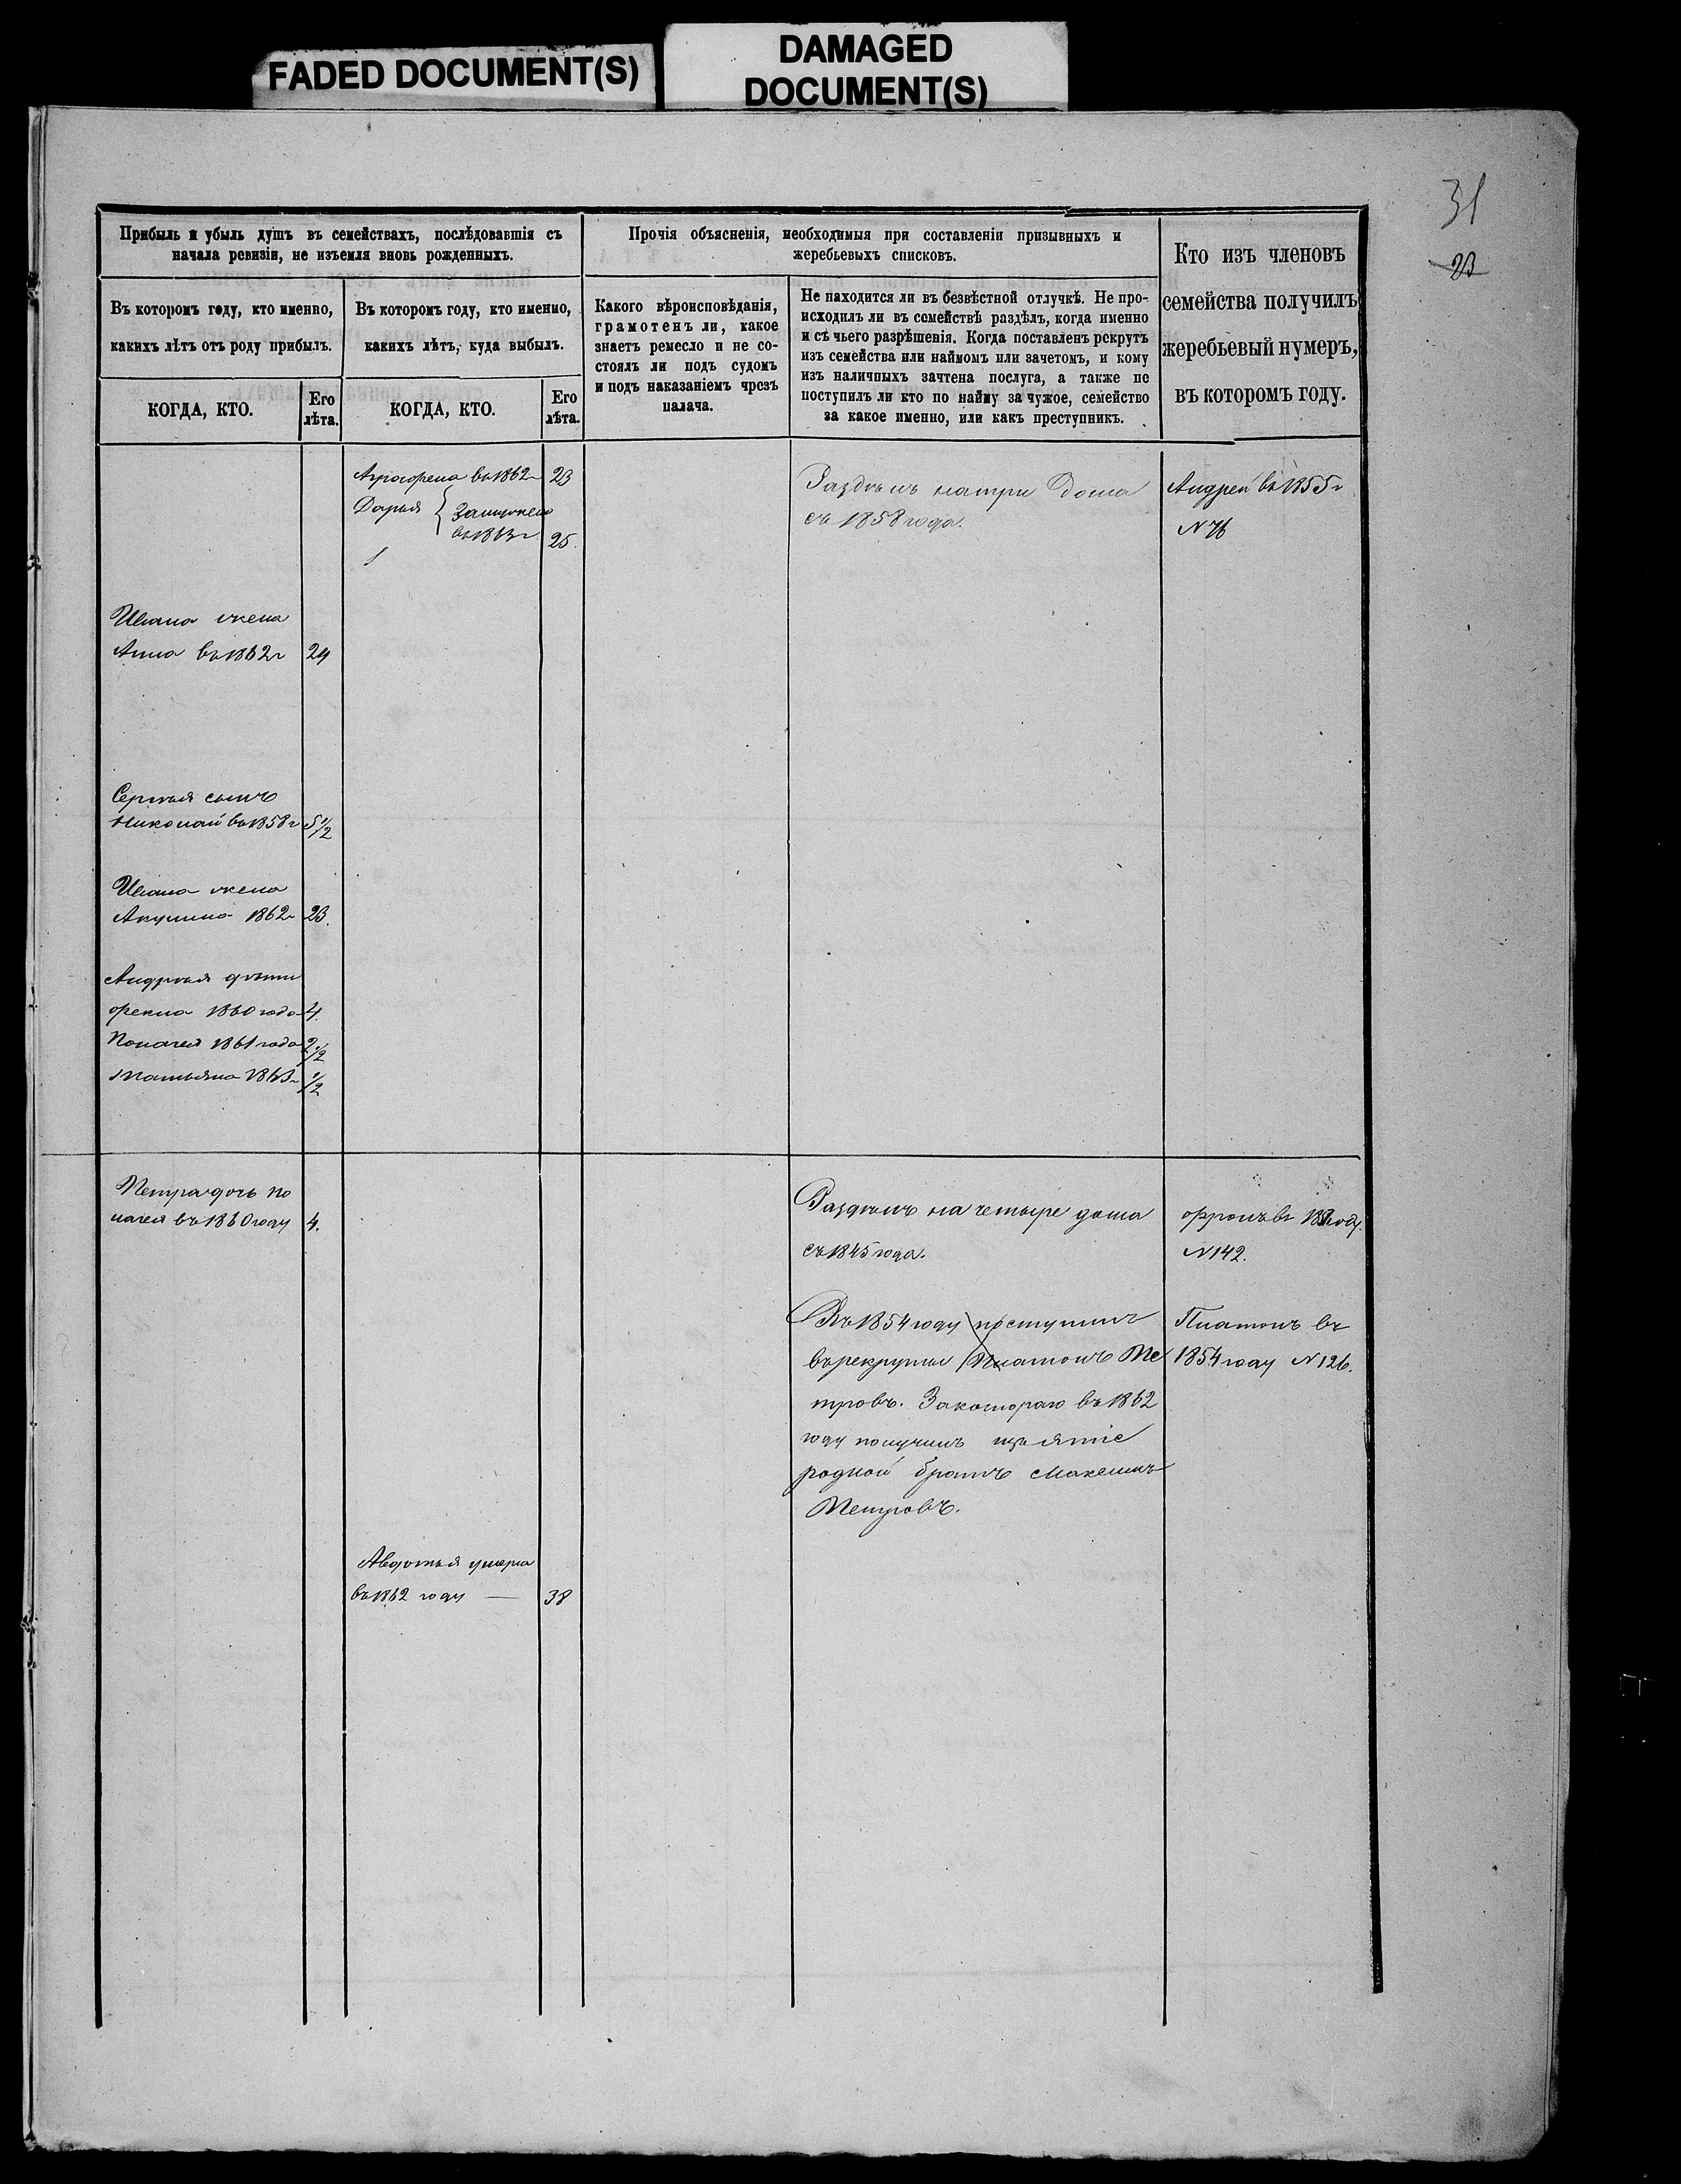 FADED DOCUMENT(S)
DAMAGED
DOCUMENT(S)
31
23
Прибыль и убыль душъ въ семействахъ, послѣдовавшія съ
начала ревизіи, не изъемля вновь рожденныхъ.
Въ которомъ году, кто именно,
какихъ лѣтъ отъ роду прибылъ.
КОГДА, КТО.
Его
лѣта.
Въ которомъ году, кто именно,
какихъ лѣтъ, куда выбылъ.
КОГДА, КТО.
Его
лѣта.
Прочія объясненія, необходимыя при составленіи призывныхъ и
жеребьевыхъ списковъ.
Какого вѣроисповѣданія,
грамотенъ ли, какое
знаетъ ремесло и не со-
стоялъ ли подъ судомъ
и подъ наказаніемъ чрезъ
палача.
Не находится ли въ безвѣстной отлучкѣ. Не про-
исходилъ ли въ семействѣ раздѣлъ, когда именно
и съ чьего разрѣшенія. Когда поставленъ рекрутъ
изъ семейства или наймомъ или зачетомъ, и кому
изъ наличныхъ зачтена послуга, а также не
поступилъ ли кто по найму за чужое, семейство
за какое именно, или какъ преступникъ.
Кто изъ членовъ
семейства получилъ
жеребьевый нумеръ,
въ которомъ году.
Аграфена въ 1862 г 23
Дарья { Замужемъ
въ 1863 г 25.
Раздѣлъ на три дома
съ 1858 года.
Андрей въ 1855 г
N 76
Ивана жена
Анна въ 1862 г 24
Сергѣя сынъ
Николай въ 1858 г 5 1/2
Ивана жена
Акулина 1862 г 23.
Андрѣя дѣти
Фекла 1860 года 4.
Палагея 1861 года 2 1/2
Татьяна 1863 г 1/2
Петра дочь По
лагея въ 1860 году 4.
Раздѣлъ на четыре дома
съ 1845 года.
Фролъ въ году.
N 142.
Въ 1854 году поступилъ
въ рекруты Платонъ Пе
тровъ. За котораго въ 1862
году получилъ
родной братъ
Петровъ.
Платонъ въ
1854 году N 126.
Авдотья умерла
въ 1862 году — 38